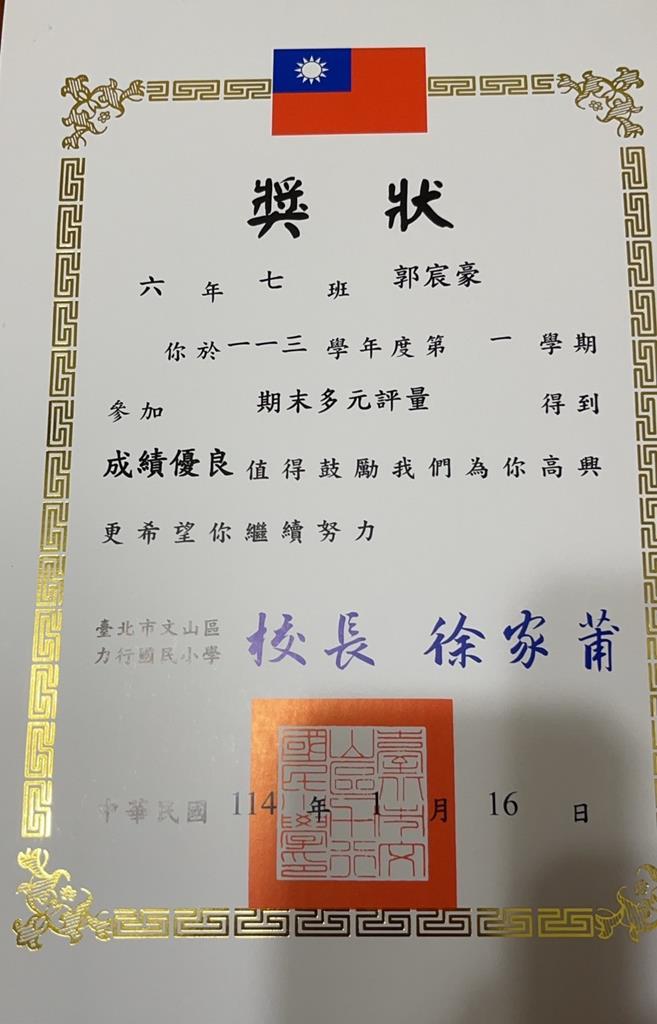 獎狀
六年七班 郭宸豪
你於一一三學年度第一學期
參加 期末多元評量 得到
成績優良值得鼓勵我們為你高興
更希望你繼續努力
臺北市文山區
力行國民小學
校長 徐家莆
中華民國 114 年 1 月 16 日
臺北市文山區力行國民小學印